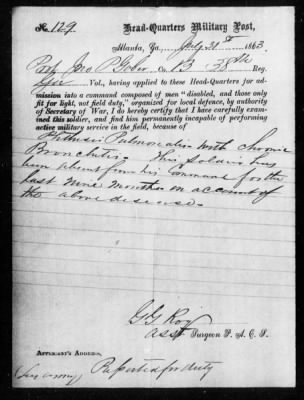 No. 129. Head-Quarters Military Post,
Atlanta, Ga., July 31st 1863.
Pvt. Jno P Gober Co. B 38th Reg.
Vol., having applied to these Head-Quarters for ad-
mission into a command composed of men "disabled, and those only
fit for light, not field duty," organized for local defence, by authority
of Secretary of War, I do hereby certify that I have carefully exam-
ined this soldier, and find him permanently incapable of performing
active military service in the field, because of
Phthisis Pulmonalis with Chronic
Bronchitis. This Soldier has
been absent from his command for the
last nine months on account of
the above disease.
G G Roy
Asst Surgeon P. A. C. S.
Applicant's Address,
Reported for duty